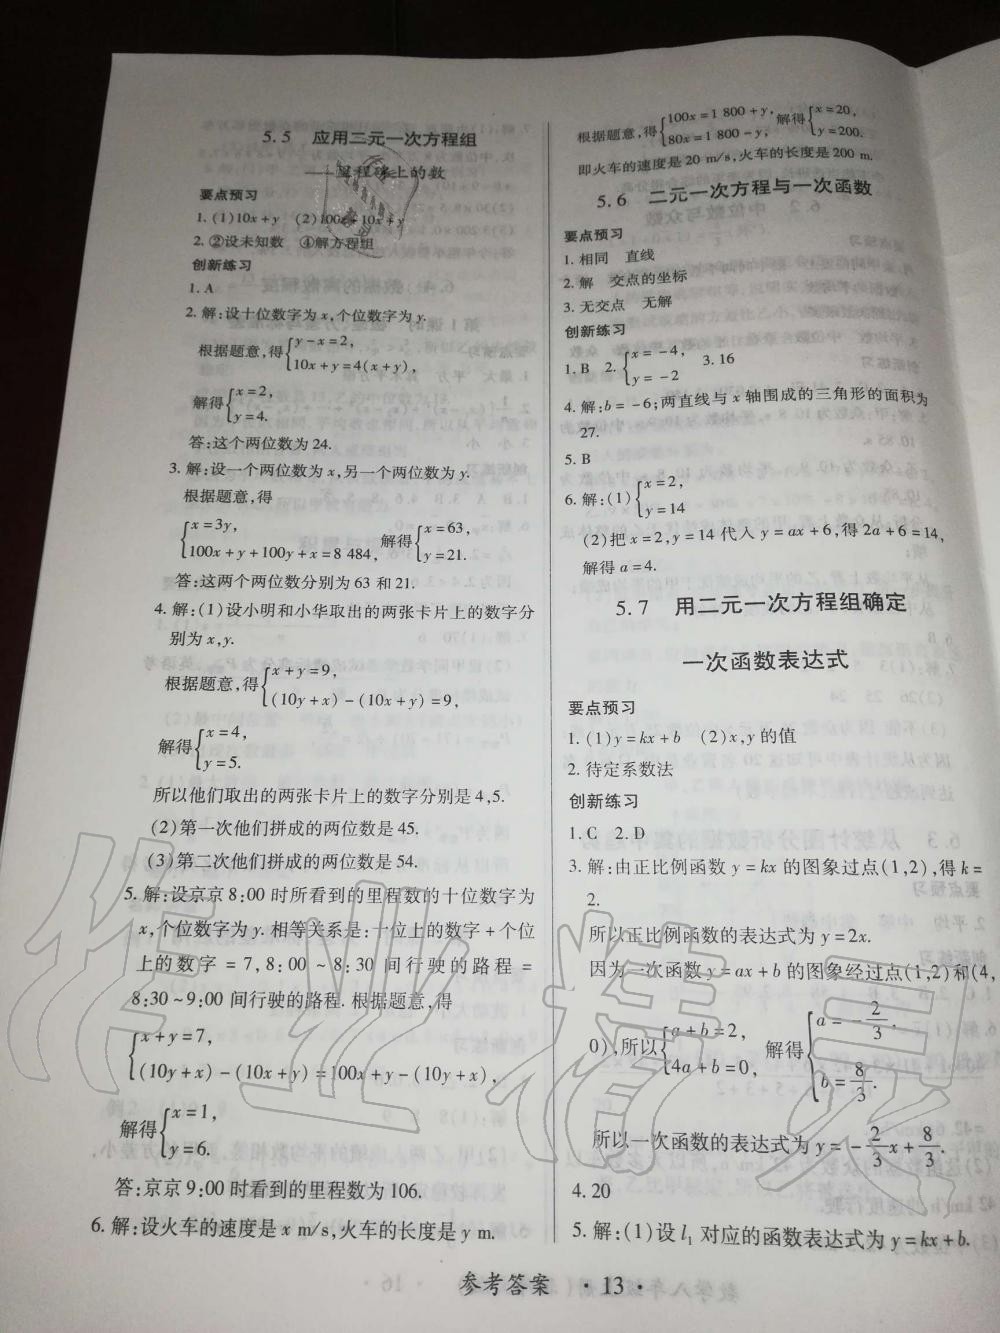 5.5 应用二元一次方程组
——里程碑上的数
要点预习
1. (1)10x+y (2)100x+10x+y
2. ②设未知数 ④解方程组
创新练习
1. A
2. 解:设十位数字为 x,个位数字为 y.
根据题意,得{y-x=2,
10x+y=4(x+y),
解得{x=2,
y=4.
答:这个两位数为 24.
3. 解:设一个两位数为 x,另一个两位数为 y.
根据题意,得
{x=3y,
100x+y+100y+x=8 484,
解得{x=63,
y=21.
答:这两个两位数分别为 63 和 21.
4. 解:(1)设小明和小华取出的两张卡片上的数字分
别为 x,y.
根据题意,得{x+y=9,
(10y+x)-(10x+y)=9,
解得{x=4,
y=5.
所以他们取出的两张卡片上的数字分别是 4,5.
(2)第一次他们拼成的两位数是 45.
(3)第二次他们拼成的两位数是 54.
5. 解:设京京 8:00 时所看到的里程数的十位数字为
x,个位数字为 y. 相等关系是:十位上的数字+个位
上的数字=7,8:00~8:30 间行驶的路程=
8:30~9:00 间行驶的路程. 根据题意,得
{x+y=7,
(10y+x)-(10x+y)=100x+y-(10y+x),
解得{x=1,
y=6.
答:京京 9:00 时看到的里程数为 106.
6. 解:设火车的速度是 x m/s,火车的长度是 y m.
根据题意,得{100x=1 800+y,
80x=1 800-y,
解得{x=20,
y=200.
即火车的速度是 20 m/s,火车的长度是 200 m.
5.6 二元一次方程与一次函数
要点预习
1. 相同 直线
2. 解 交点的坐标
3. 无交点 无解
创新练习
1. B 2. {x=-4,
y=-2
3. 16
4. 解:b=-6;两直线与 x 轴围成的三角形的面积为
27.
5. B
6. 解:(1){x=2,
y=14
(2)把 x=2,y=14 代入 y=ax+6,得 2a+6=14,
解得 a=4.
5.7 用二元一次方程组确定
一次函数表达式
要点预习
1. (1)y=kx+b (2)x,y 的值
2. 待定系数法
创新练习
1. C 2. D
3. 解:由正比例函数 y=kx 的图象过点(1,2),得 k=
2.
所以正比例函数的表达式为 y=2x.
因为一次函数 y=ax+b 的图象经过点(1,2)和(4,
0),所以{a+b=2,
4a+b=0,
解得{a=-2/3,
b=8/3.
所以一次函数的表达式为 y=-2/3x+8/3.
4. 20
5. 解:(1)设 l₁ 对应的函数表达式为 y=kx+b.
参考答案 · 13 ·
作业精灵